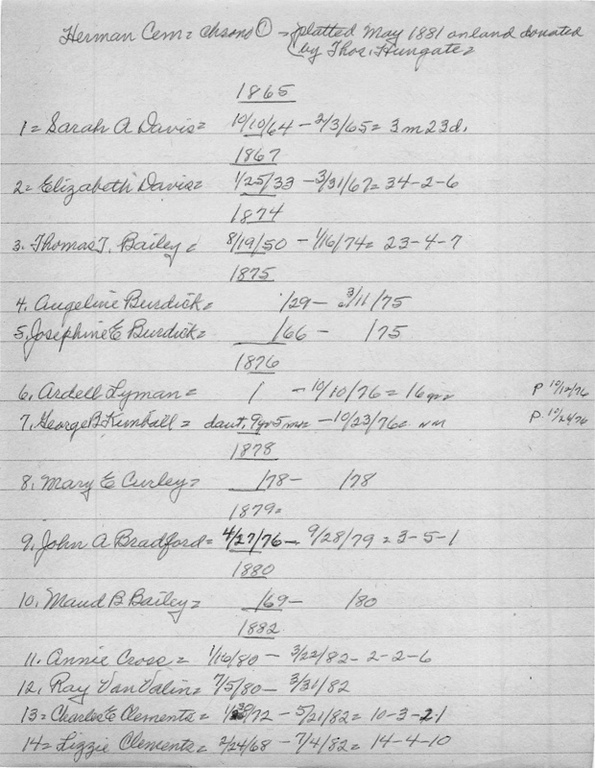 Herman Cem= chrono ① - platted May 1881 on land donated
by Thos. Hungate=
1865
1= Sarah A Davis= 10/10/64 - 2/3/65= 3m 23d.
1867
2= Elizabeth Davis= 1/25/33 - 3/31/67= 34-2-6
1874
3. Thomas T. Bailey= 8/19/50 - 1/16/74= 23-4-7
1875
4. Angeline Burdick= /29- 3/11/75
5. Josephine E Burdick= /66 - /75
1876
6. Ardell Lyman= / - 10/10/76= 16yrs P 10/12/76
7. George B Kimball = daut. 9yr 5mos - 10/23/76= P. 10/26/76
1878
8. Mary E Curley= /78- /78
1879=
9. John A Bradford= 4/27/76- 9/28/79 = 3-5-1
1880
10. Maud B Bailey= /69- /80
1882
11. Annie Cross= 1/16/80 - 3/22/82- 2-2-6
12. Ray VanValin= 7/5/80- 3/31/82
13= Charles E Clements= /72 - 5/21/82= 10-3-21
14= Lizzie Clements= 2/24/68 - 7/4/82= 14-4-10